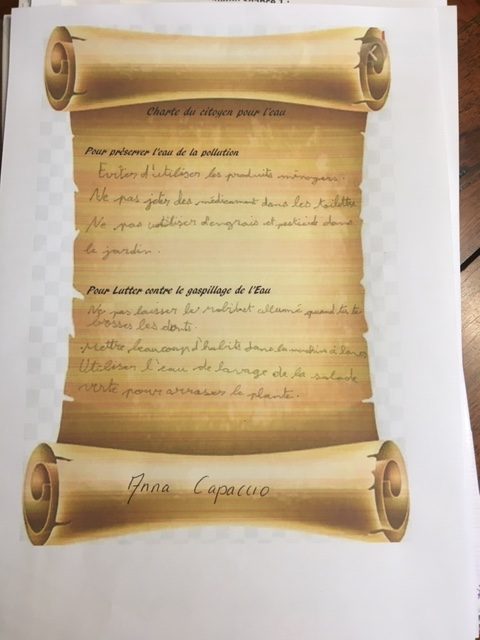 Charte du citoyen pour l'eau
Pour préserver l'eau de la pollution
Eviter d'utiliser les produits ménagers.
Ne pas jeter des médicament dans les toilettes
Ne pas utiliser d'engrais et pesticide dans
le jardin.
Pour Lutter contre le gaspillage de l'Eau
Ne pas laisser le robinet allumé quand tu te
brosses les dents.
Mettre beaucoup d'habits dans la machine à laver
Utiliser l'eau de lavage de la salade
verte pour arroser le plante.
Anna Capaccio